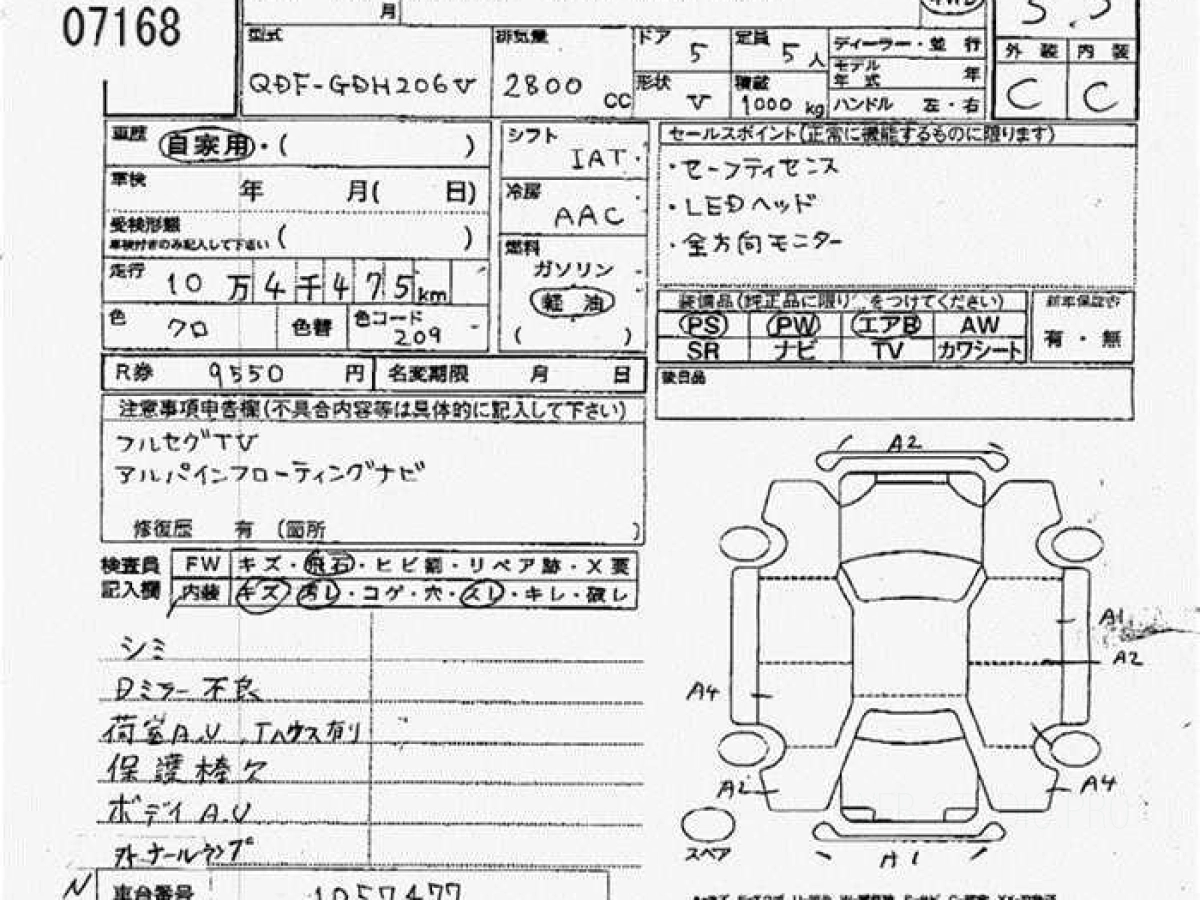 07168
月
型式
QDF-GDH206V
排気量
2800 CC
ドア 5
定員 5人
形状 V
積載 1000 kg
ディーラー・並 行
モデル年式 年
ハンドル 左・右
外 装 内 装
C C
車歴 自家用・( )
車検 年 月( 日)
受検形態 ( )
車検付きのみ記入して下さい
走行 10 万 4 千 4 7 5 km
色 クロ 色替 色コード 209
シフト IAT
冷房 AAC
燃料
ガソリン
軽 油
( )
セールスポイント(正常に機能するものに限ります)
・セーフティセンス
・LEDヘッド
・全方向モニター
装備品(純正品に限り をつけてください)
PS PW エアB AW
SR ナビ TV カワシート
新車保証書
有 ・ 無
後日品
R券 9550 円 名変期限 月 日
注意事項申告欄(不具合内容等は具体的に記入して下さい)
フルセグTV
アルパインフローティングナビ
修復歴 有 (箇所 )
検査員記入欄
FW キズ・飛石・ヒビ割・リペア跡・X要
内装 キズ・汚レ・コゲ・穴・スレ・キレ・破レ
シミ
Dミラー不良
荷室A.U.Tハウス有り
保護棒欠
ボデイA.U
車台番号 1057477
A2
A1
A2
A4
A2
A4
スペア
A1